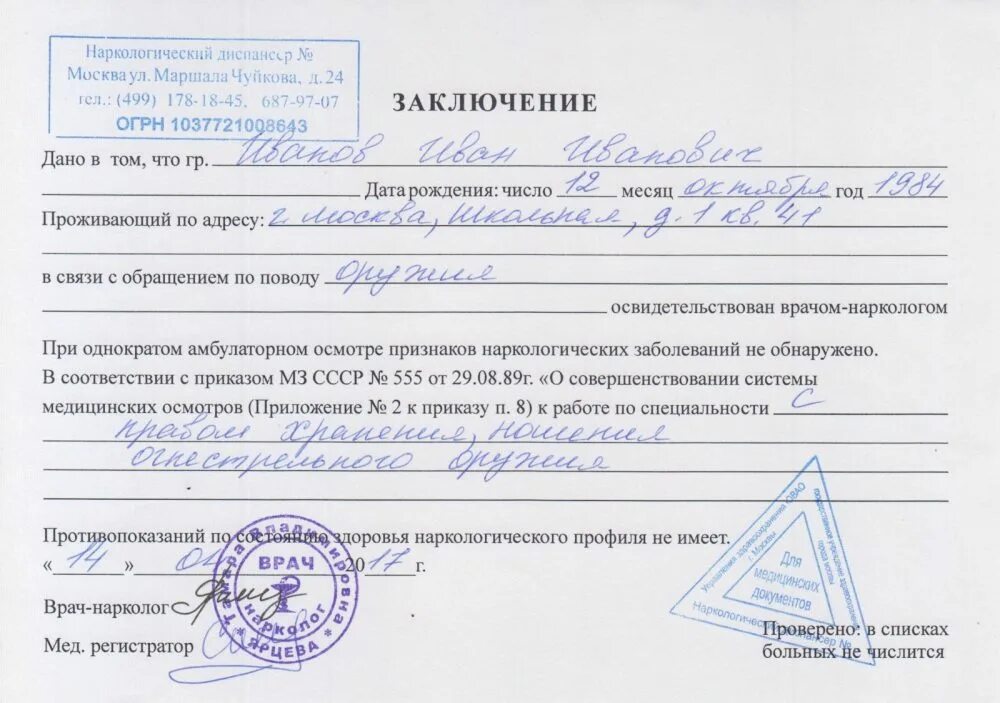 Наркологический диспансер №
Москва ул. Маршала Чуйкова, д. 24
тел.: (499) 178-18-45, 687-97-07
ОГРН 1037721008643
ЗАКЛЮЧЕНИЕ
Дано в том, что гр. Иванов Иван Иванович
Дата рождения: число 12 месяц октября год 1984
Проживающий по адресу: г. Москва, Школьная, д. 1 кв. 41
в связи с обращением по поводу оружия
освидетельствован врачом-наркологом
При однократом амбулаторном осмотре признаков наркологических заболеваний не обнаружено.
В соответствии с приказом МЗ СССР № 555 от 29.08.89г. «О совершенствовании системы
медицинских осмотров (Приложение № 2 к приказу п. 8) к работе по специальности с
правом хранения, ношения
огнестрельного оружия
Противопоказаний по состоянию здоровья наркологического профиля не имеет.
«14» 2017г.
Врач-нарколог
Мед. регистратор
Тамара Владимировна
ЯРЦЕВА
ВРАЧ
нарколог
Управления здравоохранения ЮВАО
г. Москвы
государственное учреждение здравоохранения
города москвы
Наркологический диспансер №
Для
медицинских
документов
Проверено: в списках
больных не числится